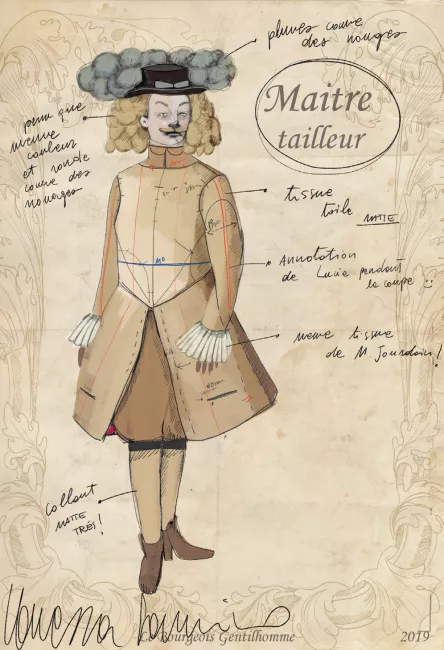 plumes comme
des nuages
Maitre
tailleur
couleur
et ronde
comme des
nuages
tissue
toile MATTE
Annotation
de Lucia pendant
la coupe :)
meme tissue
de M. Jourdain!
collant
MATTE
TRÉS!
Le Bourgeois Gentilhomme
2019